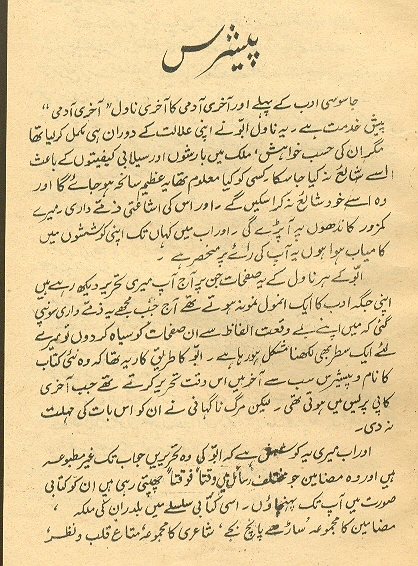 پیشرس
جاسوسی ادب کے پہلے اور آخری آدمی کا آخری ناول "آخری آدمی"
پیش خدمت ہے۔ یہ ناول ابّو نے اپنی علالت کے دوران ہی مکمل کر لیا تھا
مگر ان کی حسب خواہش، ملک میں بارشوں اور سیلابی کیفیتوں کے باعث
اسے شایع نہ کیا جا سکا۔ کسی کو کیا معلوم تھا یہ عظیم سانحہ ہو جائے گا اور
وہ اسے خود شایع نہ کرا سکیں گے۔ اور اس کی اشاعتی ذمّے داری میرے
کمزور کاندھوں پہ آپڑے گی۔ اور اب میں کہاں تک اپنی کوششوں میں
کامیاب ہوا ہوں یہ آپ کی رائے پر منحصر ہے۔
ابّو کے ہر ناول کے یہ صفحات جن پر آج آپ میری تحریر دیکھ رہے ہیں
اپنی جگہ ادب کا ایک انمول نمونہ ہوتے تھے آج جب مجھے یہ ذمّے داری سونپی
گئی کہ میں اپنے بے وقعت الفاظ سے ان صفحات کو سیاہ کر دوں تو میرے
لئے ایک سطر بھی لکھنا مشکل ہو رہا ہے۔ ابّو کا طریق کار یہ تھا کہ وہ نئی کتاب
کا نام و پیشرس سب سے آخر میں اس وقت تحریر کرتے تھے جب آخری
کاپی پریس میں ہوتی تھی۔ لیکن مرگ ناگہانی نے ان کو اس بات کی مہلت
نہ دی۔
اور اب میری یہ کوشش ہے کہ ابّو کی وہ تحریریں جو اب تک غیر مطبوعہ
ہیں اور وہ مضامین جو مختلف رسائل میں وقتاً فوقتاً چھپتی رہی ہیں ان کو کتابی
صورت میں آپ تک پہنچاؤں۔ اسی کتابی سلسلے میں بلدران کی ملکہ،
مضامین کا مجموعہ ساڑھے پانچ بجے، شاعری کا مجموعہ متاع قلب و نظر،